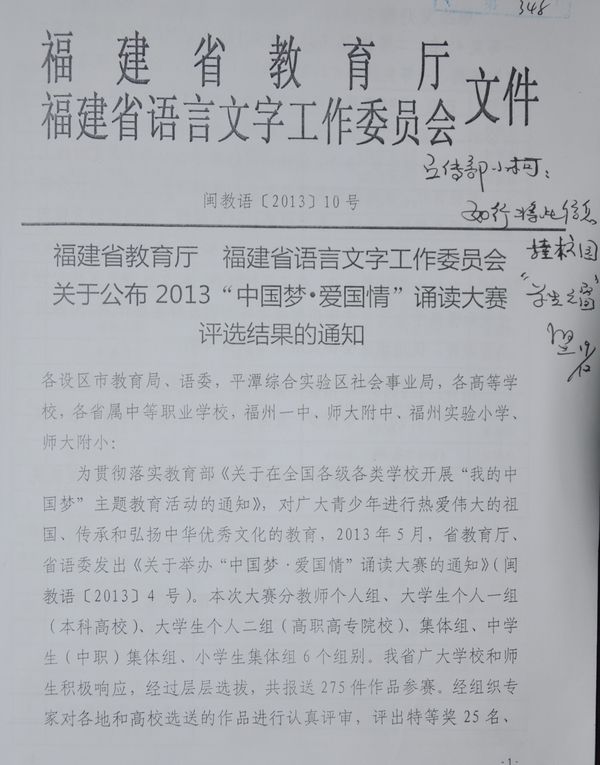 348
福建省教育厅
福建省语言文字工作委员会
文件
宣传部小柯:
闽教语〔2013〕10号
福建省教育厅 福建省语言文字工作委员会
关于公布 2013“中国梦·爱国情”诵读大赛
评选结果的通知
将此信息
挂校园
“学生之窗”
各设区市教育局、语委,平潭综合实验区社会事业局,各高等学
校,各省属中等职业学校,福州一中、师大附中、福州实验小学、
师大附小:
为贯彻落实教育部《关于在全国各级各类学校开展“我的中
国梦”主题教育活动的通知》,对广大青少年进行热爱伟大的祖
国、传承和弘扬中华优秀文化的教育,2013年5月,省教育厅、
省语委发出《关于举办“中国梦·爱国情”诵读大赛的通知》(闽
教语〔2013〕4 号)。本次大赛分教师个人组、大学生个人一组
(本科高校)、大学生个人二组(高职高专院校)、集体组、中学
生(中职)集体组、小学生集体组6个组别。我省广大学校和师
生积极响应,经过层层选拔,共报送275件作品参赛。经组织专
家对各地和高校选送的作品进行认真评审,评出特等奖25名、
·1·